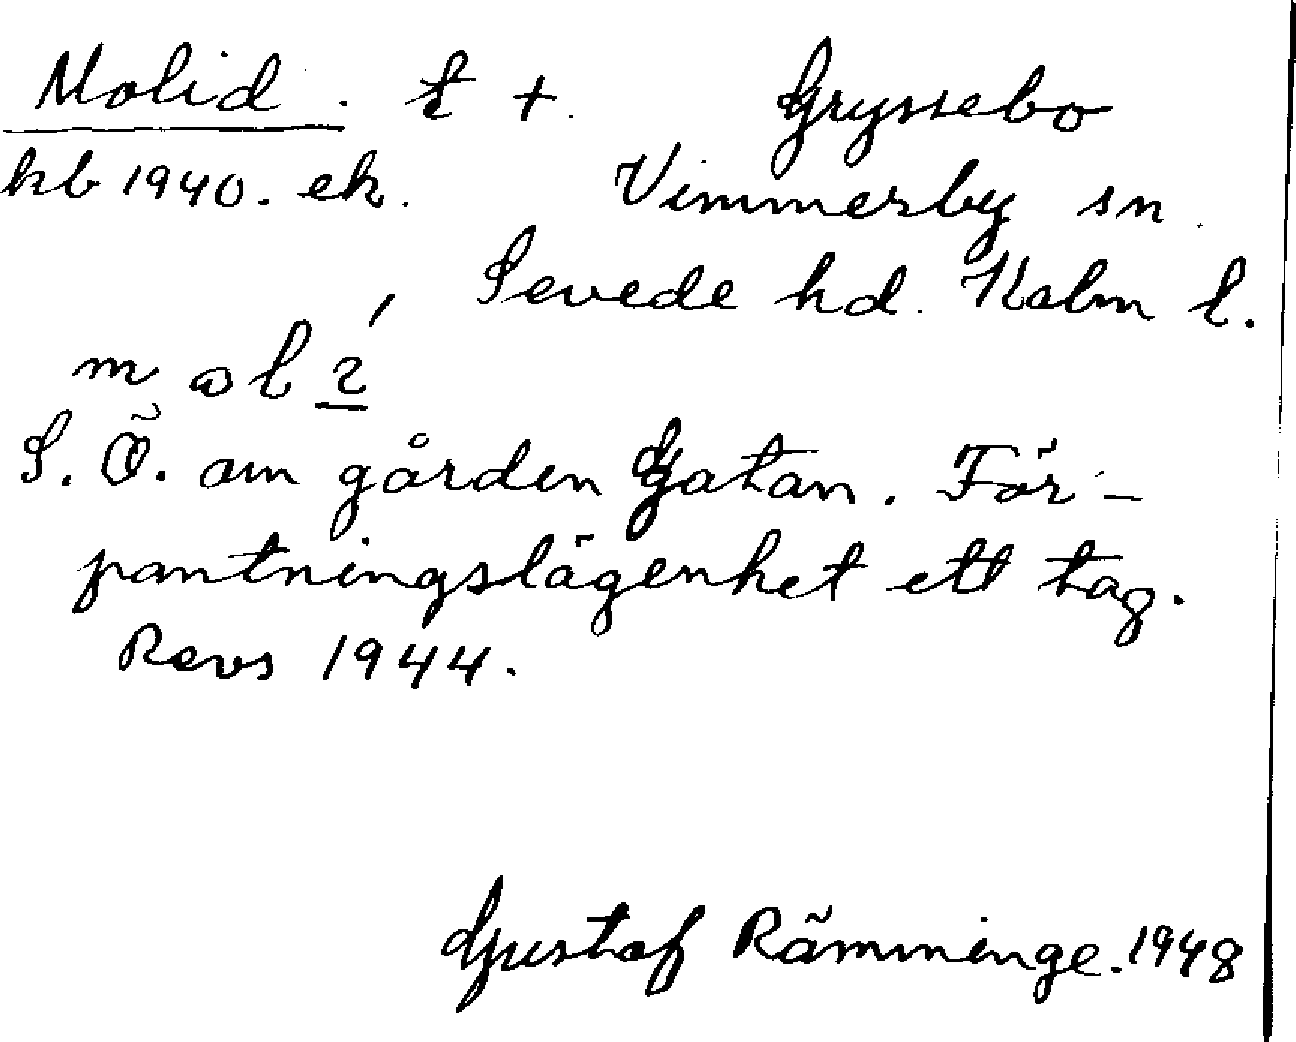 Molid. t +. Gryssebo
kb 1940. ek. Vimmerby sn.
Sevede hd. Kalm l.
S. Ö. om gården Gatan. För-
pantningslägenhet ett tag.
Revs 1944.
Gustaf Rämminge. 1948